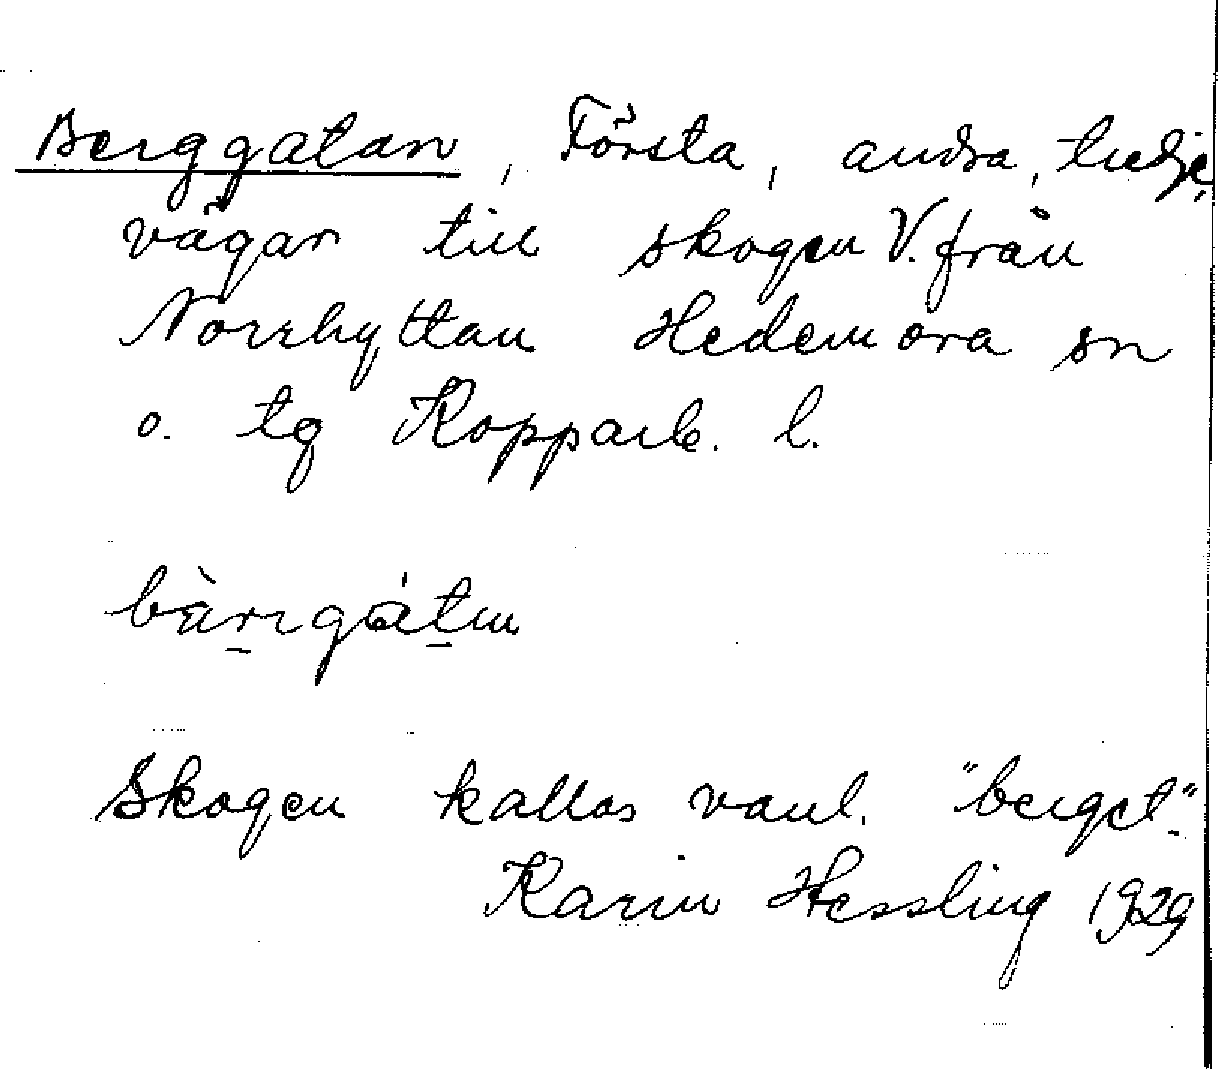 Berggatan, Första, andra, tredje,
vägar till skogen V. från
Norrhyttan Hedemora sn
o. tg Kopparb. l.
bàrrgátɩn
Skogen kallas vanl. "berget".
Karin Hessling 1929